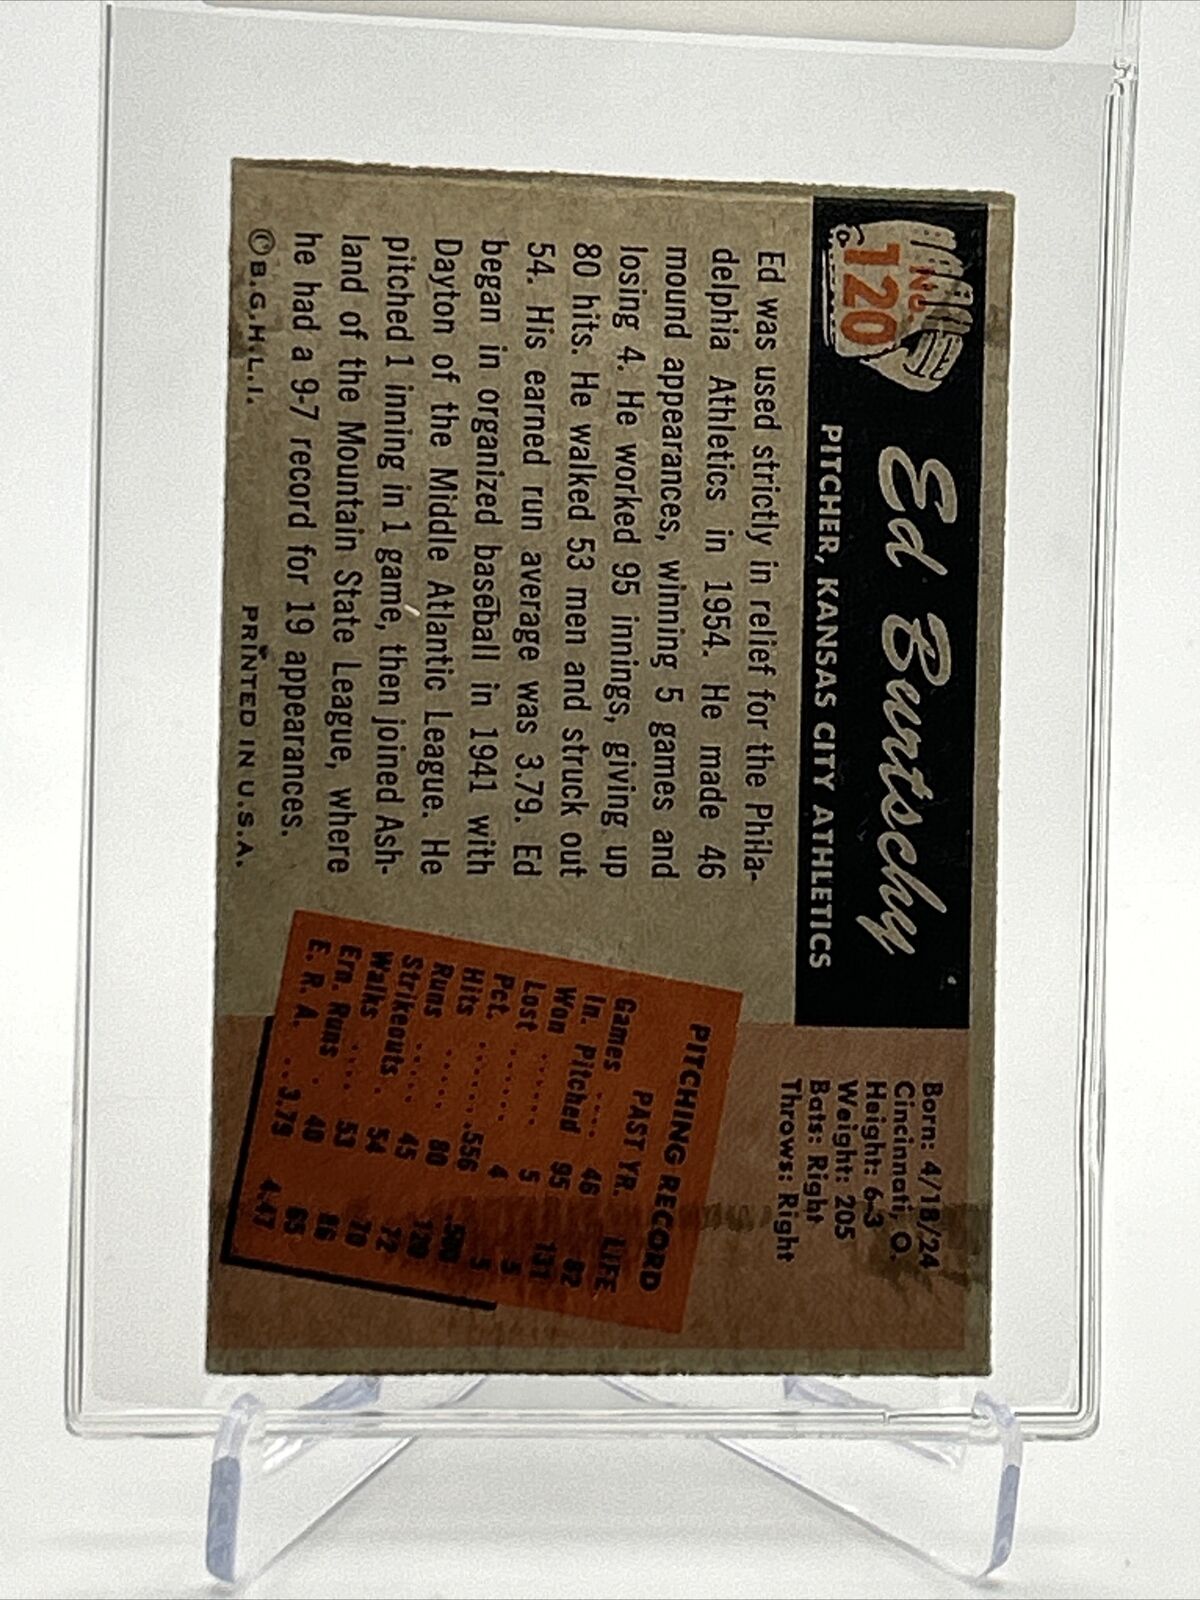 NO.
120
Ed Burtschy
PITCHER, KANSAS CITY ATHLETICS
Born: 4/18/24
Cincinnati, O.
Height: 6-3
Weight: 205
Bats: Right
Throws: Right
Ed was used strictly in relief for the Phila-
delphia Athletics in 1954. He made 46
mound appearances, winning 5 games and
losing 4. He worked 95 innings, giving up
80 hits. He walked 53 men and struck out
54. His earned run average was 3.79. Ed
began in organized baseball in 1941 with
Dayton of the Middle Atlantic League. He
pitched 1 inning in 1 game, then joined Ash-
land of the Mountain State League, where
he had a 9-7 record for 19 appearances.
© B.G.H.L.I. PRINTED IN U.S.A.
PITCHING RECORD
PAST YR. LIFE
Games .... 46 82
In. Pitched 95 131
Won ...... 5 5
Lost ...... 4 5
Pct. ...... .556 .500
Hits ...... 80 120
Runs ..... 45 72
Strikeouts . 54 70
Walks .... 53 86
Ern. Runs . 40 65
E. R. A. ... 3.79 4.47